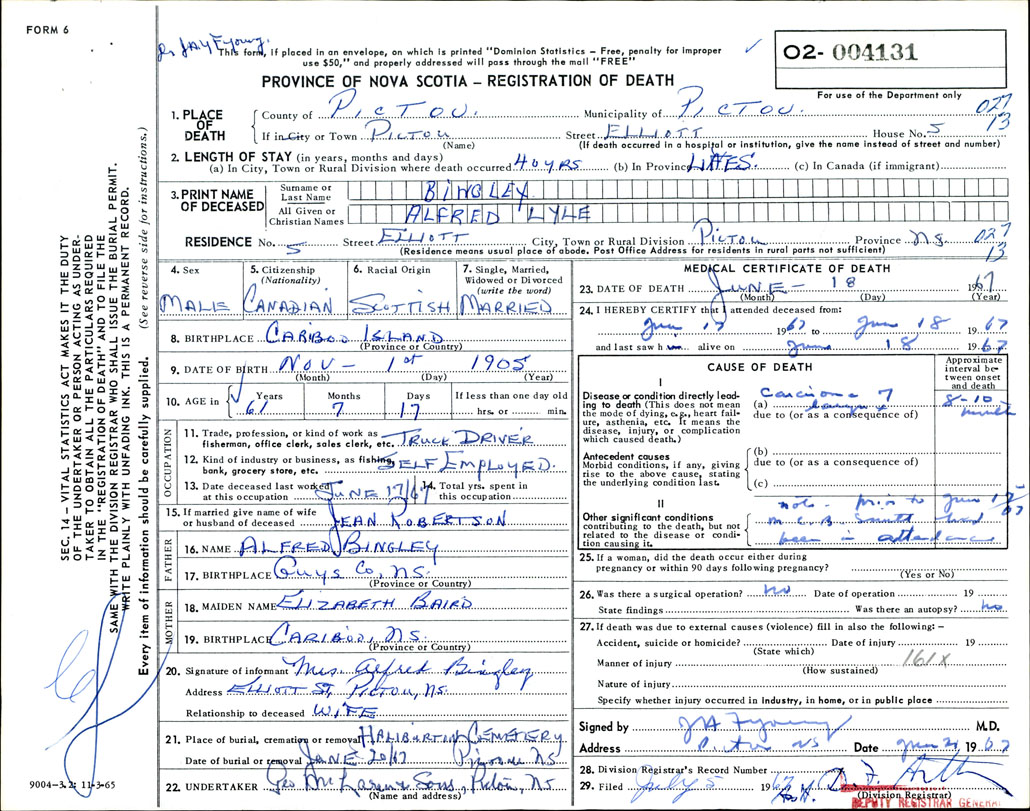 FORM 6
Dr JAY Fyoung.
This form, if placed in an envelope, on which is printed "Dominion Statistics – Free, penalty for improper
use $50," and properly addressed will pass through the mail "FREE"
O2- 004131
For use of the Department only
PROVINCE OF NOVA SCOTIA – REGISTRATION OF DEATH
027
13
1. PLACE OF DEATH
County of PICTOU. Municipality of PICTOU.
If in City or Town PICTOU (Name) Street ELLIOTT House No. 5
(If death occurred in a hospital or institution, give the name instead of street and number)
2. LENGTH OF STAY (in years, months and days)
(a) In City, Town or Rural Division where death occurred 40 YRS (b) In Province LIFES. (c) In Canada (if immigrant)
3. PRINT NAME OF DECEASED
Surname or Last Name BINGLEY
All Given or Christian Names ALFRED LYLE
RESIDENCE No. 5 Street ELLIOTT City, Town or Rural Division PICTOU Province N.S. 027
13
(Residence means usual place of abode. Post Office Address for residents in rural parts not sufficient)
4. Sex
MALE
5. Citizenship (Nationality)
CANADIAN
6. Racial Origin
SCOTTISH
7. Single, Married, Widowed or Divorced (write the word)
MARRIED
8. BIRTHPLACE CARIBOO ISLAND
(Province or Country)
9. DATE OF BIRTH NOV – 1st 1905
(Month) (Day) (Year)
10. AGE in Years Months Days If less than one day old
61 7 17 hrs. or min.
OCCUPATION
11. Trade, profession, or kind of work as
fisherman, office clerk, sales clerk, etc. TRUCK DRIVER
12. Kind of industry or business, as fishing,
bank, grocery store, etc. SELF EMPLOYED.
13. Date deceased last worked
at this occupation JUNE 17/67 14. Total yrs. spent in
this occupation
15. If married give name of wife
or husband of deceased JEAN ROBERTSON
FATHER
16. NAME ALFRED BINGLEY
17. BIRTHPLACE GUYS CO, NS.
(Province or Country)
MOTHER
18. MAIDEN NAME ELIZABETH BAIRD
19. BIRTHPLACE CARIBOO, NS.
(Province or Country)
20. Signature of informant Mrs. Alfred Bingley
Address ELLIOTT ST, PICTOU, NS.
Relationship to deceased WIFE
21. Place of burial, cremation or removal HALIBURTON CEMETERY
Date of burial or removal JUNE 20/67 PICTOU NS
22. UNDERTAKER Geo McLaren & Sons, Pictou, NS
(Name and address)
MEDICAL CERTIFICATE OF DEATH
23. DATE OF DEATH JUNE – 18 1967
(Month) (Day) (Year)
24. I HEREBY CERTIFY that I attended deceased from:
June 17 1967 to June 18 1967
and last saw him alive on June 18 1967
CAUSE OF DEATH
Approximate interval between onset and death
I
Disease or condition directly leading to death (This does not mean the mode of dying, e.g., heart failure, asthenia, etc. It means the disease, injury, or complication which caused death.)
(a) Carcinoma of
larynx
8-10
month
due to (or as a consequence of)
Antecedent causes
Morbid conditions, if any, giving rise to the above cause, stating the underlying condition last.
(b)
due to (or as a consequence of)
(c)
II
Other significant conditions contributing to the death, but not related to the disease or condition causing it.
note - prior to June 17/67
M.C.B Smith had
been in attendance
25. If a woman, did the death occur either during
pregnancy or within 90 days following pregnancy?
(Yes or No)
26. Was there a surgical operation? no Date of operation 19
State findings Was there an autopsy? no
27. If death was due to external causes (violence) fill in also the following: –
Accident, suicide or homicide? Date of injury 19
(State which)
Manner of injury 161X
(How sustained)
Nature of injury
Specify whether injury occurred in Industry, in home, or in public place
Signed by JA Fyoung M.D.
Address Pictou NS Date June 21 1967
28. Division Registrar's Record Number
29. Filed July 5 1967
(Division Registrar)
DEPUTY REGISTRAR GENERAL
SEC. 14 – VITAL STATISTICS ACT MAKES IT THE DUTY
OF THE UNDERTAKER OR PERSON ACTING AS UNDER-
TAKER TO OBTAIN ALL THE PARTICULARS REQUIRED
IN THE "REGISTRATION OF DEATH" AND TO FILE THE
SAME WITH THE DIVISION REGISTRAR WHO SHALL ISSUE THE BURIAL PERMIT.
WRITE PLAINLY WITH UNFADING INK. THIS IS A PERMANENT RECORD.
Every item of information should be carefully supplied. (See reverse side for instructions.)
9004–3.2: 11-3-65